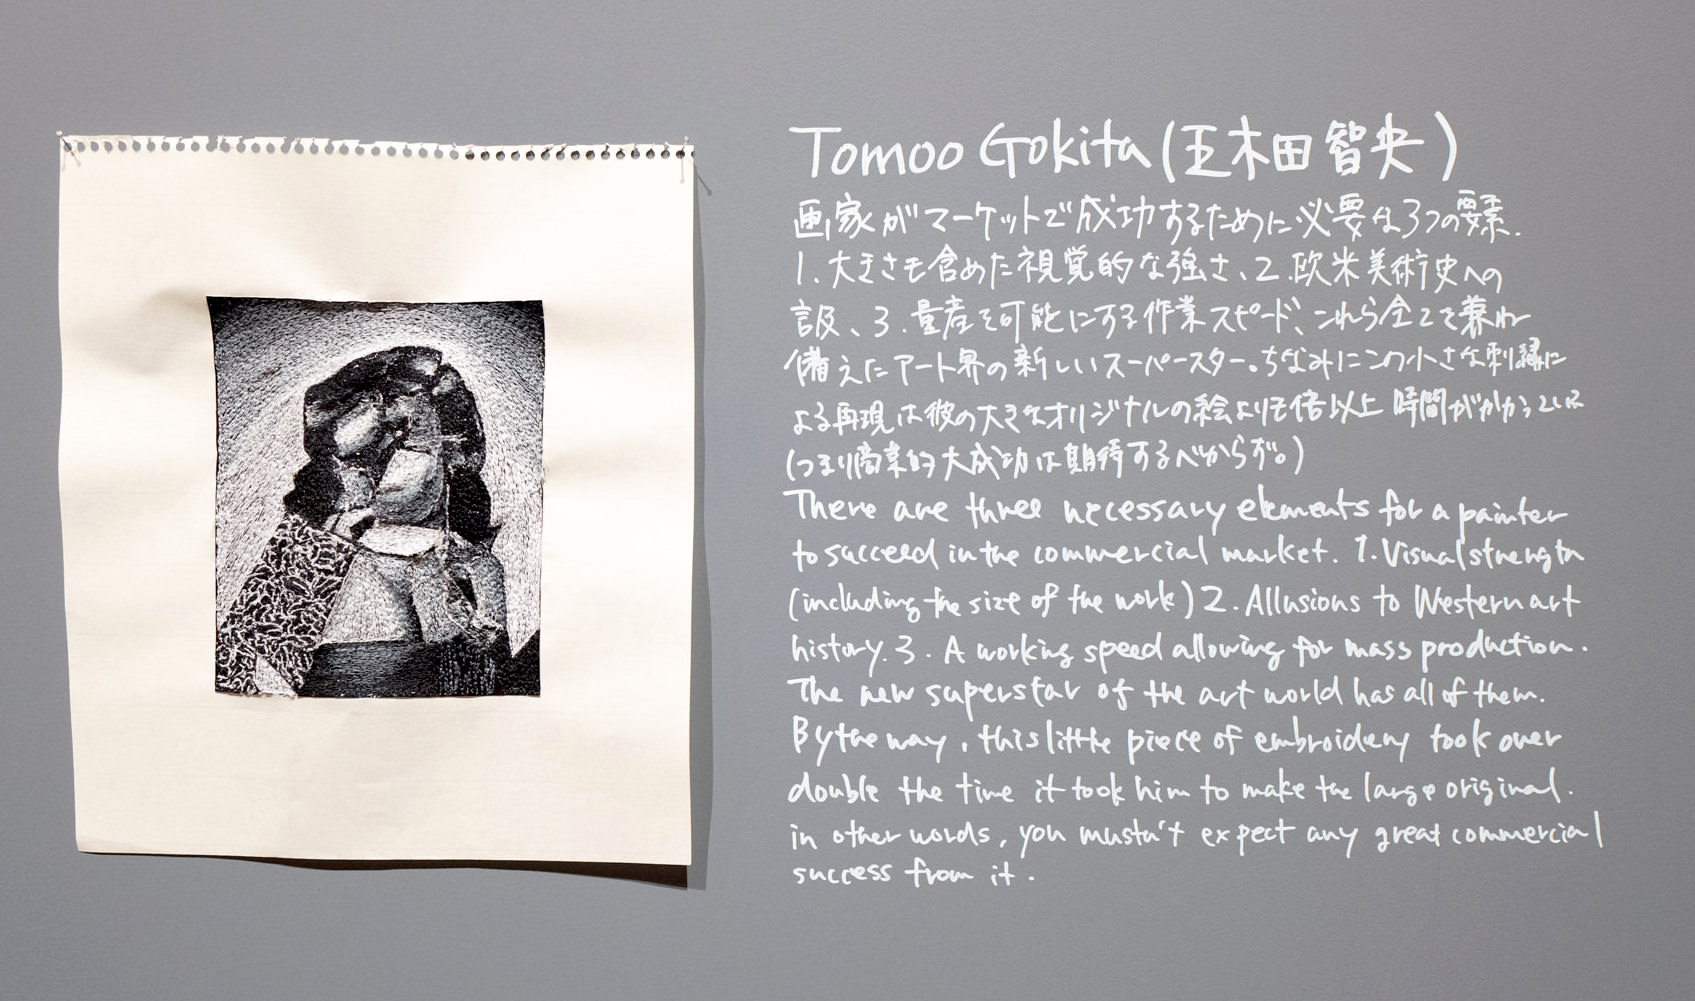 Tomoo Gokita (五木田智央)
画家がマーケットで成功するために必要な3つの要素.
1.大きさも含めた視覚的な強さ、2.欧米美術史への
言及、3.量産を可能にする作業スピード、これら全てを兼ね
備えたアート界の新しいスーパースター。ちなみにこの小さな刺繍に
よる再現は彼の大きなオリジナルの絵よりも倍以上時間がかかっている
(つまり商業的大成功は期待するべからず。)
There are three necessary elements for a painter
to succeed in the commercial market. 1. Visual strength
(including the size of the work) 2. Allusions to Western art
history. 3. A working speed allowing for mass production.
The new superstar of the art world has all of them.
By the way, this little piece of embroidery took over
double the time it took him to make the large original.
in other words, you mustn't expect any great commercial
success from it.